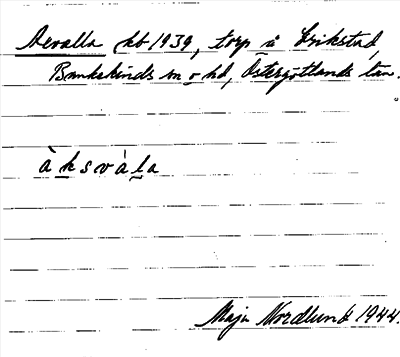 Axvalla kb 1939, torp u Erikstad,
Bankekinds sn o hd, Östergötlands län.
àksvàla
Maja Nordlund 1944.